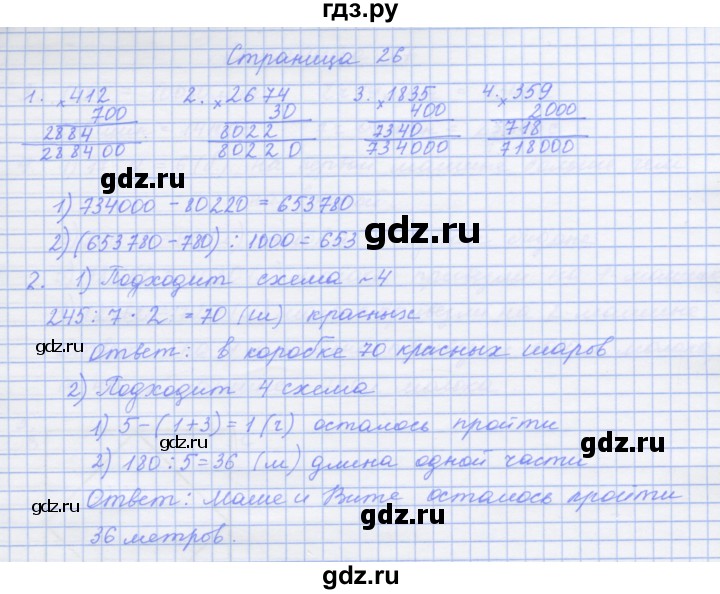 гдз.ру
Страница 26
1. × 412 2. × 2674 3. × 1835 4. × 359
700 30 400 2000
2884 8022 7340 718
288400 80220 734000 718000
gdz.ru
1) 734000 - 80220 = 653780
2) (653780 - 780) : 1000 = 653
gdz.ru
2. 1) Подходит схема ~4
245 : 7 · 2 = 70 (ш) красных
gdz.ru
Ответ: в коробке 70 красных шаров
gdz.ru
2) Подходит 4 схема
1) 5 - (1+3) = 1 (г) осталось пройти
gdz.ru
gdz.ru
2) 180 : 5 = 36 (м) длина одной части
Ответ: Маше и Вите осталось пройти
36 метров.
gdz.ru
gdz.ru
gdz.ru